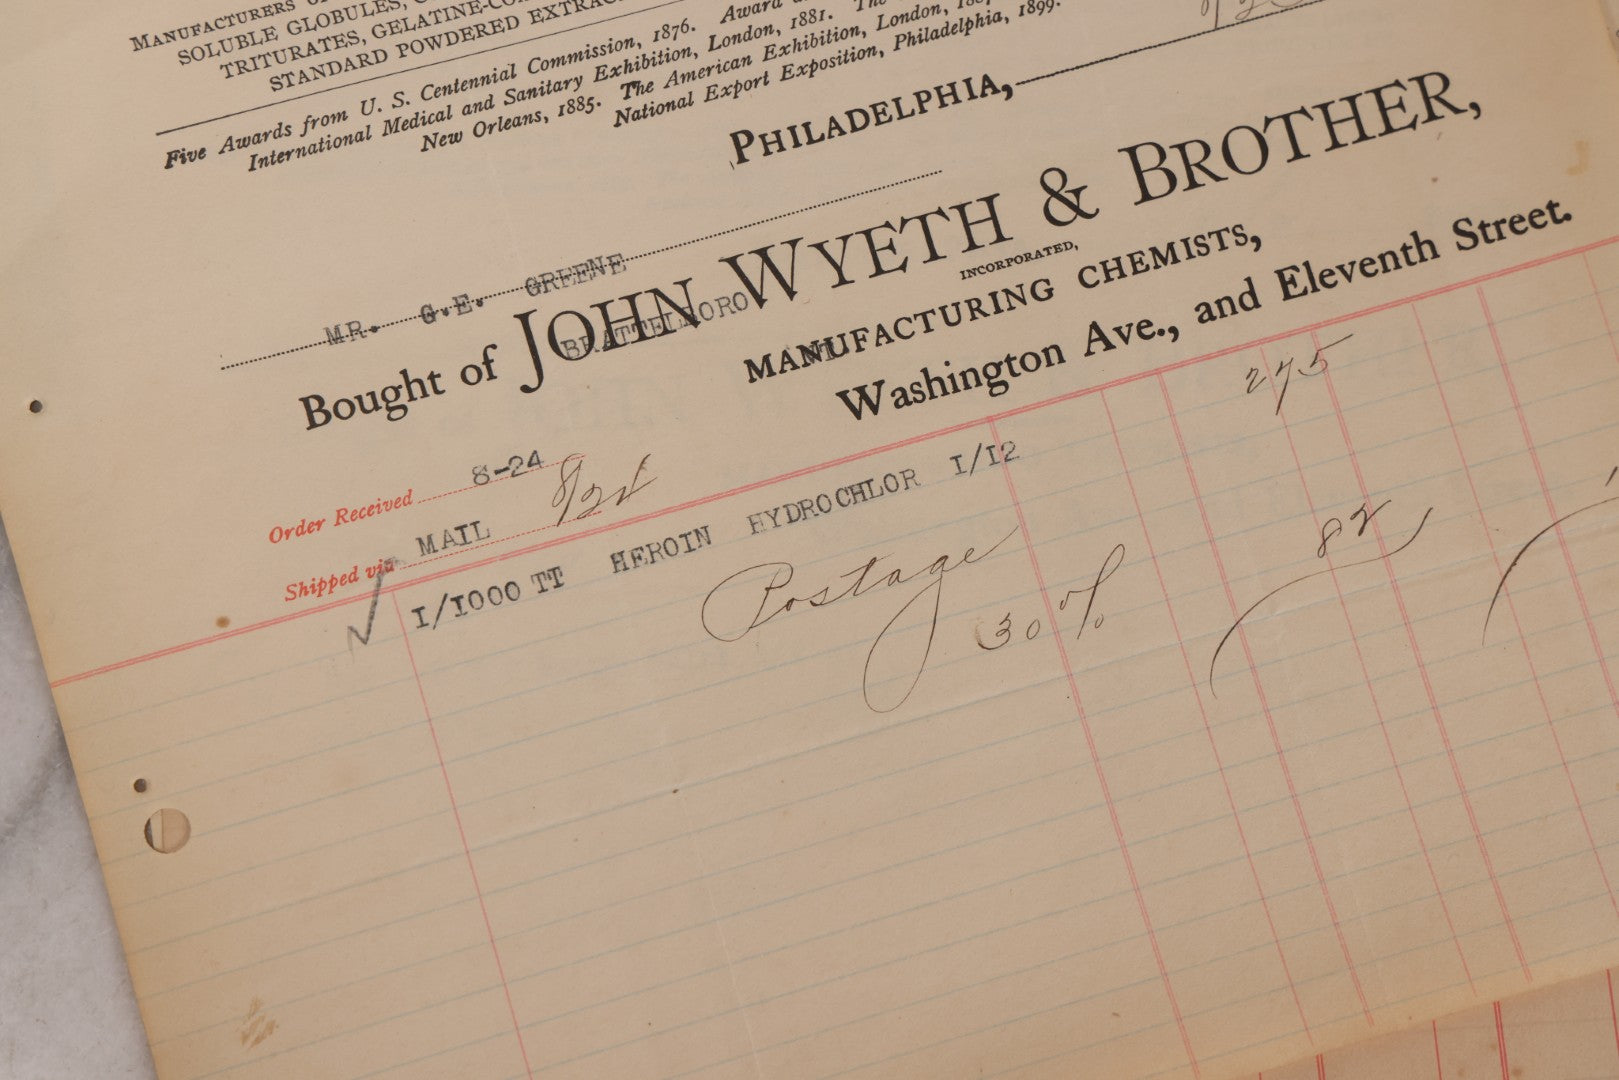 MANUFACTURERS
SOLUBLE GLOBULES,
TRITURATES, GELATINE-
STANDARD POWDERED
Five Awards from U. S. Centennial Commission, 1876. Award
International Medical and Sanitary Exhibition, London, 1881. The
New Orleans, 1885. The American Exhibition, London,
National Export Exposition, Philadelphia, 1899.
PHILADELPHIA,
MR. G.E. GREENE
BRATTELBORO
VT
Bought of JOHN WYETH & BROTHER,
INCORPORATED,
MANUFACTURING CHEMISTS,
Washington Ave., and Eleventh Street.
Order Received 8-24
Shipped via MAIL 8/24
1/1000 TT HEROIN HYDROCHLOR 1/12 275
Postage
30% 82